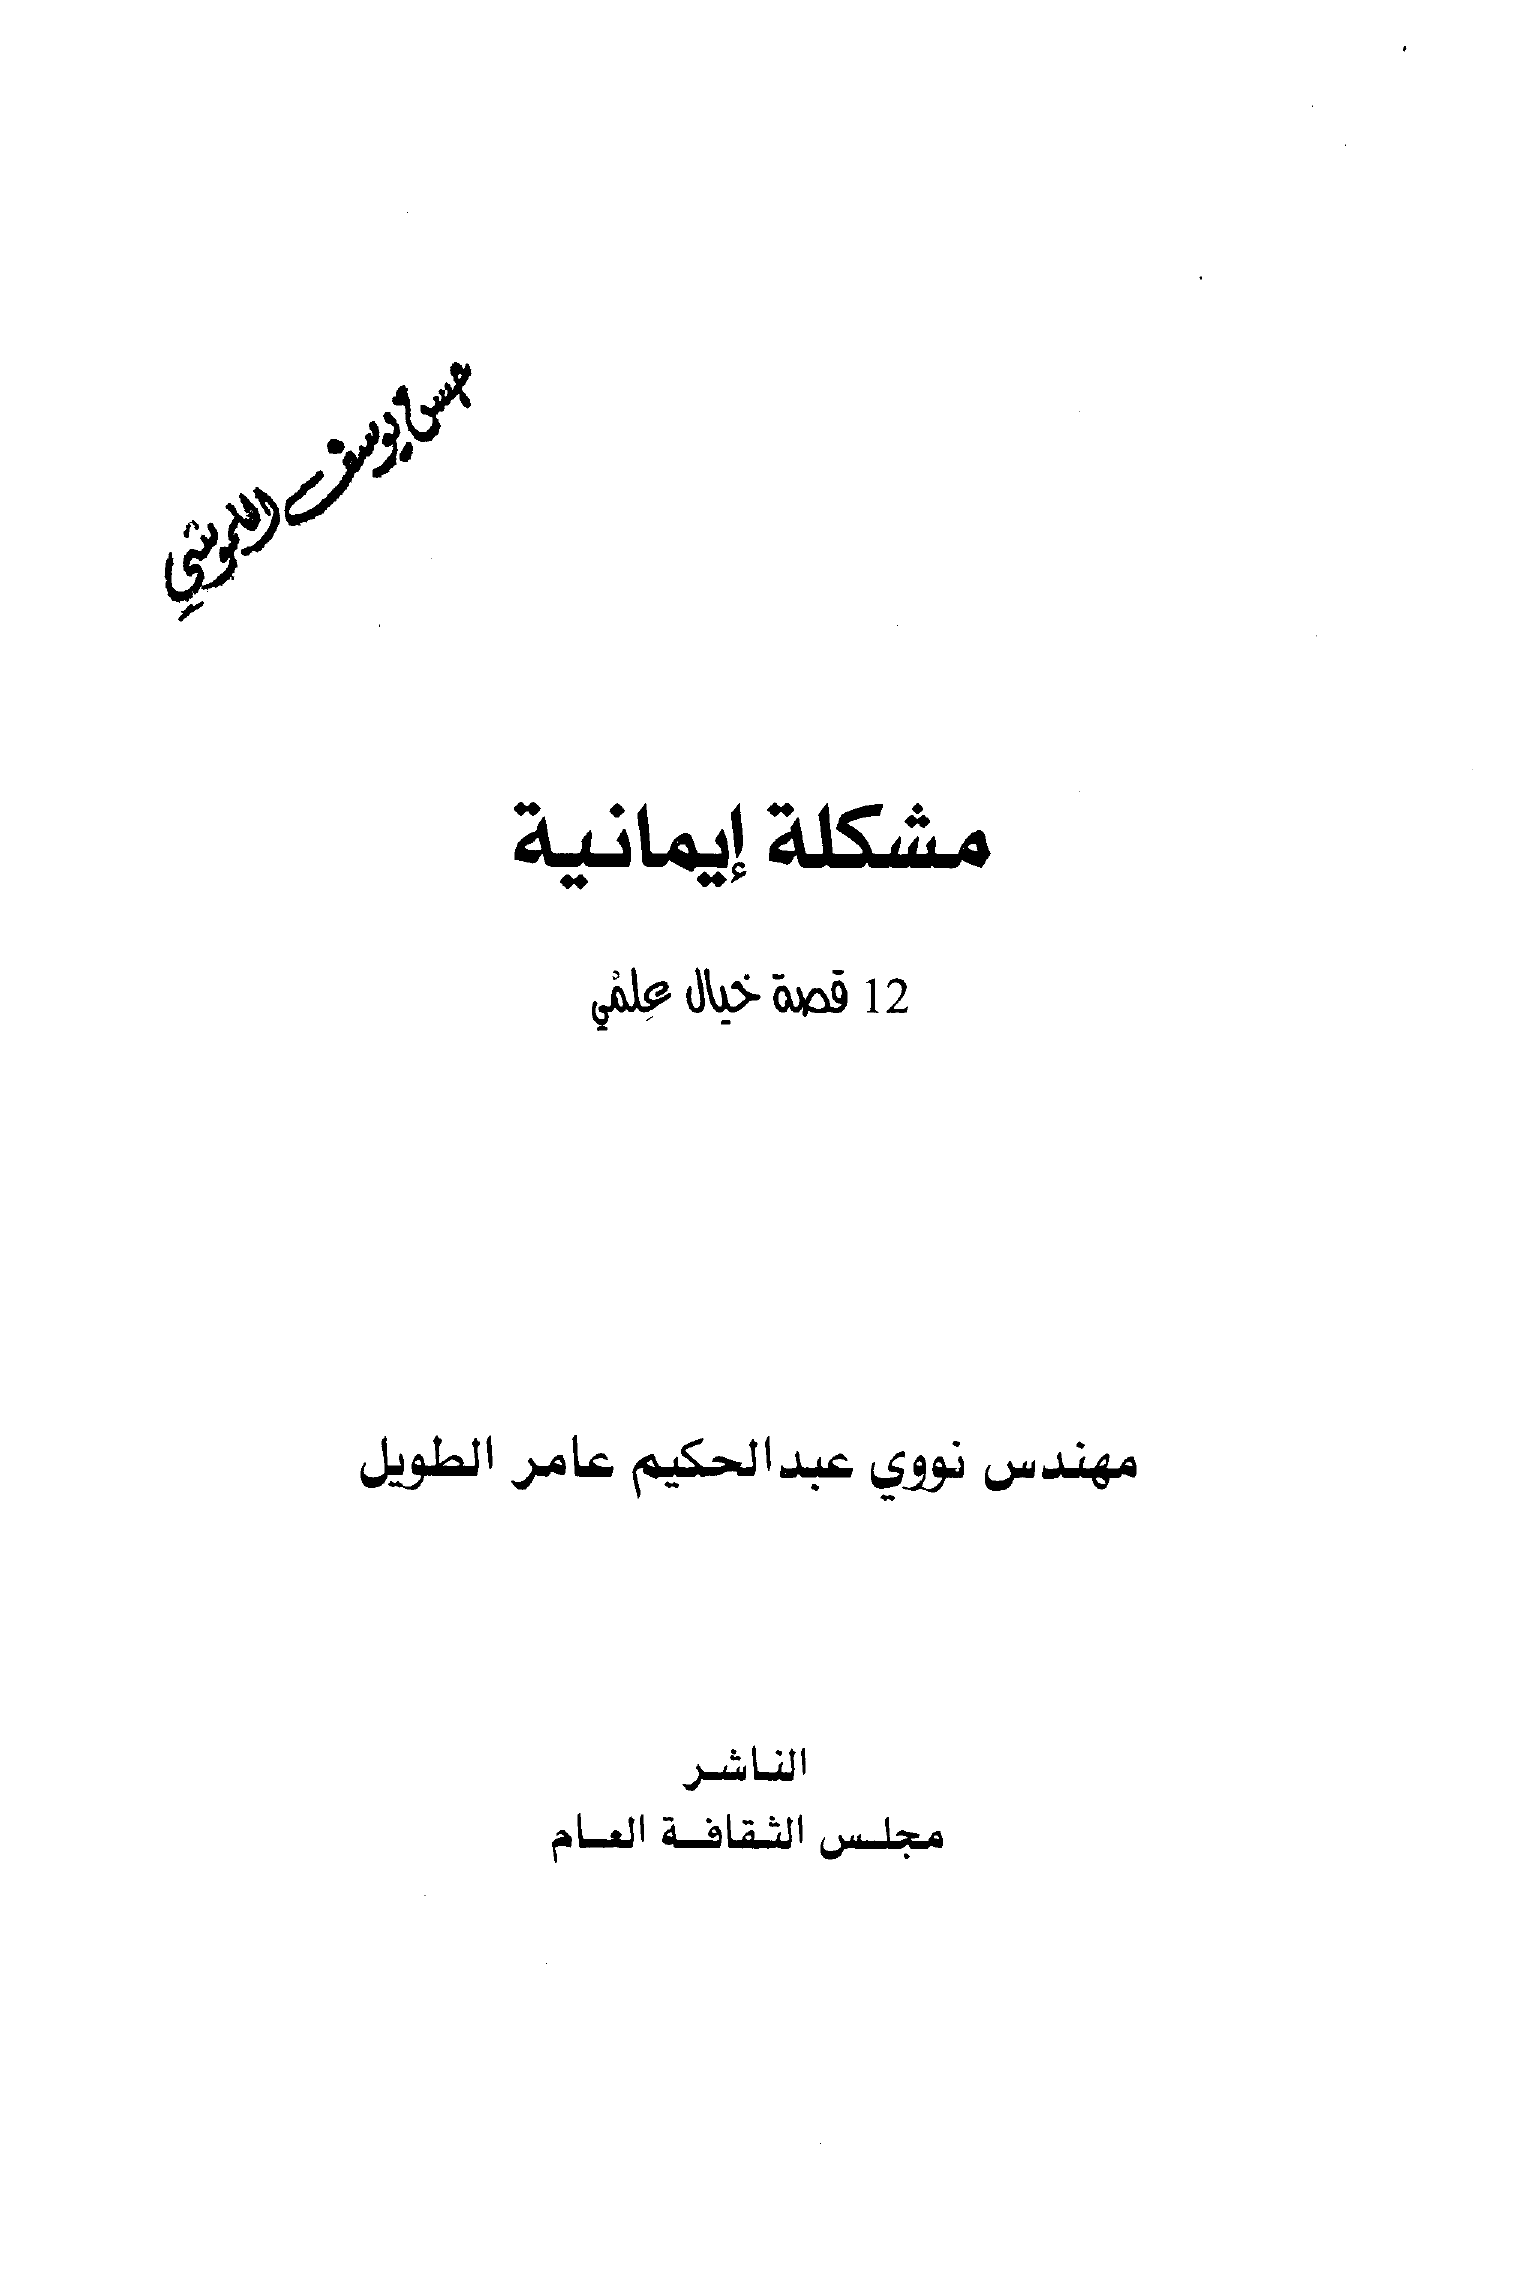 حسن يوسف
مشكلة إيمانية
12 قصة خيال علمي
مهندس نووي عبدالحكيم عامر الطويل
الناشر
مجلس الثقافة العام